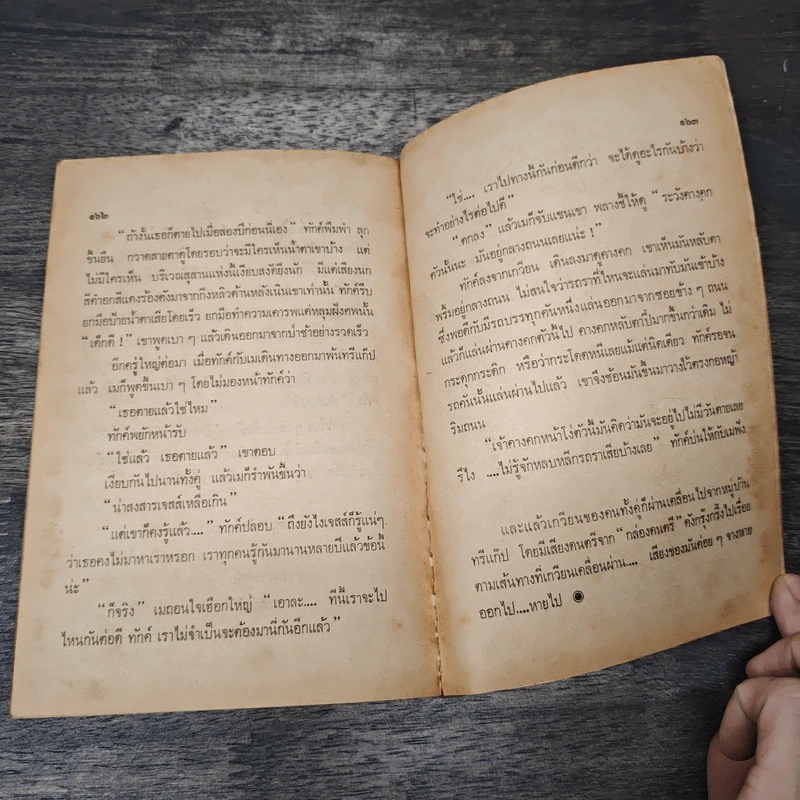 ๑๖๒
“ถ้างั้นเธอก็ตายไปเมื่อสองปีก่อนนี่เอง” ทักค์พึมพำ ลุก
ขึ้นยืน กวาดสายตาดูโดยรอบว่าจะมีใครเห็นน้ำตาเขาบ้าง แต่
ไม่มีใครเห็น บริเวณสุสานแห่งนี้เงียบสงัดยิ่งนัก มีแต่เสียงนก
สีดำอกสีแดงร้องดังมาจากกิ่งหลิวด้านหลังเนินเขาเท่านั้น ทักค์รีบ
ยกมือป้ายน้ำตาเสียโดยเร็ว ยกมือทำความเคารพแด่หลุมฝังศพนั้น
“เด็กดี !” เขาพูดเบา ๆ แล้วเดินออกมาจากป่าช้าอย่างรวดเร็ว
อีกครู่ใหญ่ต่อมา เมื่อทักค์กับเมเดินทางออกมาพ้นทรีแก๊ป
แล้ว เมก็พูดขึ้นเบา ๆ โดยไม่มองหน้าทักค์ว่า
“เธอตายแล้วใช่ไหม”
ทักค์พยักหน้ารับ
“ใช่แล้ว เธอตายแล้ว” เขาตอบ
เงียบกันไปนานทั้งคู่ แล้วเมก็รำพันขึ้นว่า
“น่าสงสารเจสส์เหลือเกิน”
“แต่เขาก็คงรู้แล้ว....” ทักค์ปลอบ “ถึงยังไงเจสส์ก็รู้แน่ๆ
ว่าเธอคงไม่มาหาเราหรอก เราทุกคนรู้กันมานานหลายปีแล้วข้อนี้
น่ะ”
“ก็จริง” เมถอนใจเฮือกใหญ่ “เอาละ.... ทีนี้เราจะไป
ไหนกันต่อดี ทักค์ เราไม่จำเป็นจะต้องมานี่กันอีกแล้ว”
๑๖๓
“ใช่.... เราไปทางนี้กันก่อนดีกว่า จะได้ดูอะไรกันบ้างว่า
จะทำอย่างไรต่อไปดี”
“ตกลง” แล้วเมก็จับแขนเขา พลางชี้ให้ดู “ระวังคางคก
ตัวนั้นนะ มันอยู่กลางถนนเลยแน่ะ !”
ทักค์ลงจากเกวียน เดินลงมาดูคางคก เขาเห็นมันหลับตา
พริ้มอยู่กลางถนน ไม่สนใจว่ารถราที่ไหนจะแล่นมาทับมันเข้าบ้าง
ซึ่งพอดีกับมีรถบรรทุกคันหนึ่งแล่นออกมาจากซอยข้าง ๆ ถนน
แล้วก็แล่นผ่านคางคกตัวนี้ไป คางคกหลับตาปี๋มากขึ้นกว่าเดิม ไม่
กระดุกกระดิก หรือว่ากระโดดหนีเลยแม้แต่นิดเดียว ทักค์รอจน
รถคันนั้นแล่นผ่านไปแล้ว เขาจึงช้อนมันขึ้นมาวางไว้ตรงกอหญ้า
ริมถนน
“เจ้าคางคกหน้าโง่ตัวนี้มันคิดว่ามันจะอยู่ไปไม่มีวันตายเลย
รึไง ....ไม่รู้จักหลบหลีกรถราเสียบ้างเลย” ทักค์บ่นให้กับเมฟัง
และแล้วเกวียนของคนทั้งคู่ก็ผ่านเคลื่อนไปจากหมู่บ้าน
ทรีแก๊ป โดยมีเสียงดนตรีจาก “กล่องดนตรี” ดังกรุ๊งกริ๊งไปเรื่อย
ตามเส้นทางที่เกวียนเคลื่อนผ่าน.... เสียงของมันค่อย ๆ จางหาย
ออกไป....หายไป